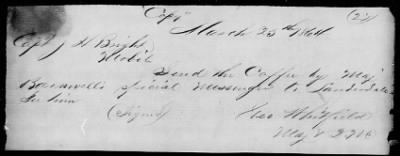 Copy (24)
March 25th 1864
Capt J H Bright
Mobile
Send the Coffee by Maj
Barnwell's special Messenger to Lauderdale
for him
(Signed) Geo Whitfield
Maj & QM